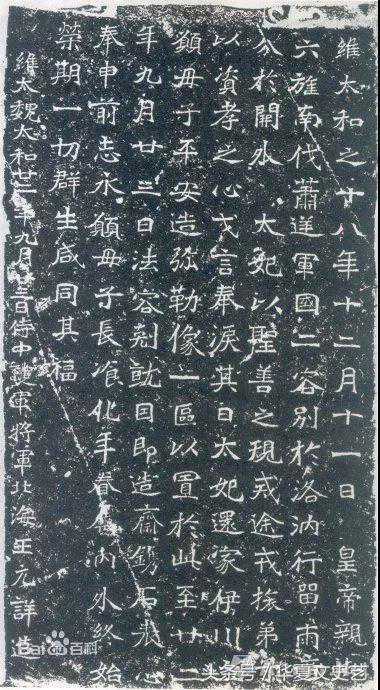 維太和之十八年十二月十一日 皇帝親
六旌南伐蕭逆軍國二容別於洛汭行留兩
分於闕外 太妃以聖善之規戒途戎旅弟
以資孝之心戈言奉淚其日太妃還家伊川
願母子平安造弥勒像一區以置於此至廿二
年九月廿三日法容剋就因即造齋鐫石表心
奉申前志永願母子長飡化年眷屬內外終始
榮期一切群生咸同其福
維太魏太和廿二年九月廿三日侍中護軍將軍北海王元詳造
Bai百科
头条号/华夏文史艺